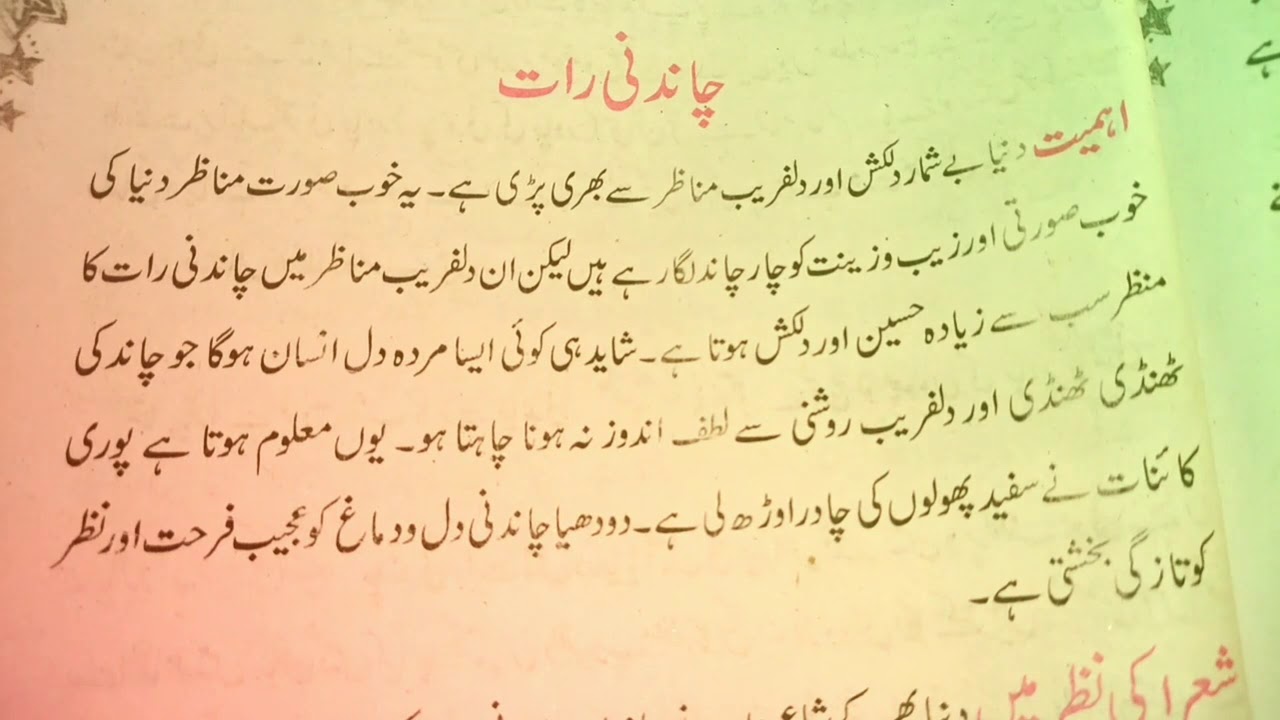 چاندنی رات
اہمیت دنیا بے شمار دلکش اور دلفریب مناظر سے بھری پڑی ہے۔ یہ خوب صورت مناظر دنیا کی
خوب صورتی اور زیب وزینت کو چار چاند لگا رہے ہیں لیکن ان دلفریب مناظر میں چاندنی رات کا
منظر سب سے زیادہ حسین اور دلکش ہوتا ہے۔ شاید ہی کوئی ایسا مردہ دل انسان ہوگا جو چاند کی
ٹھنڈی ٹھنڈی اور دلفریب روشنی سے لطف اندوز نہ ہونا چاہتا ہو۔ یوں معلوم ہوتا ہے پوری
کائنات نے سفید پھولوں کی چادر اوڑھ لی ہے۔ دودھیا چاندنی دل ودماغ کو عجیب فرحت اور نظر
کو تازگی بخشتی ہے۔
شعرا کی نظر میں دنیا بھر کے